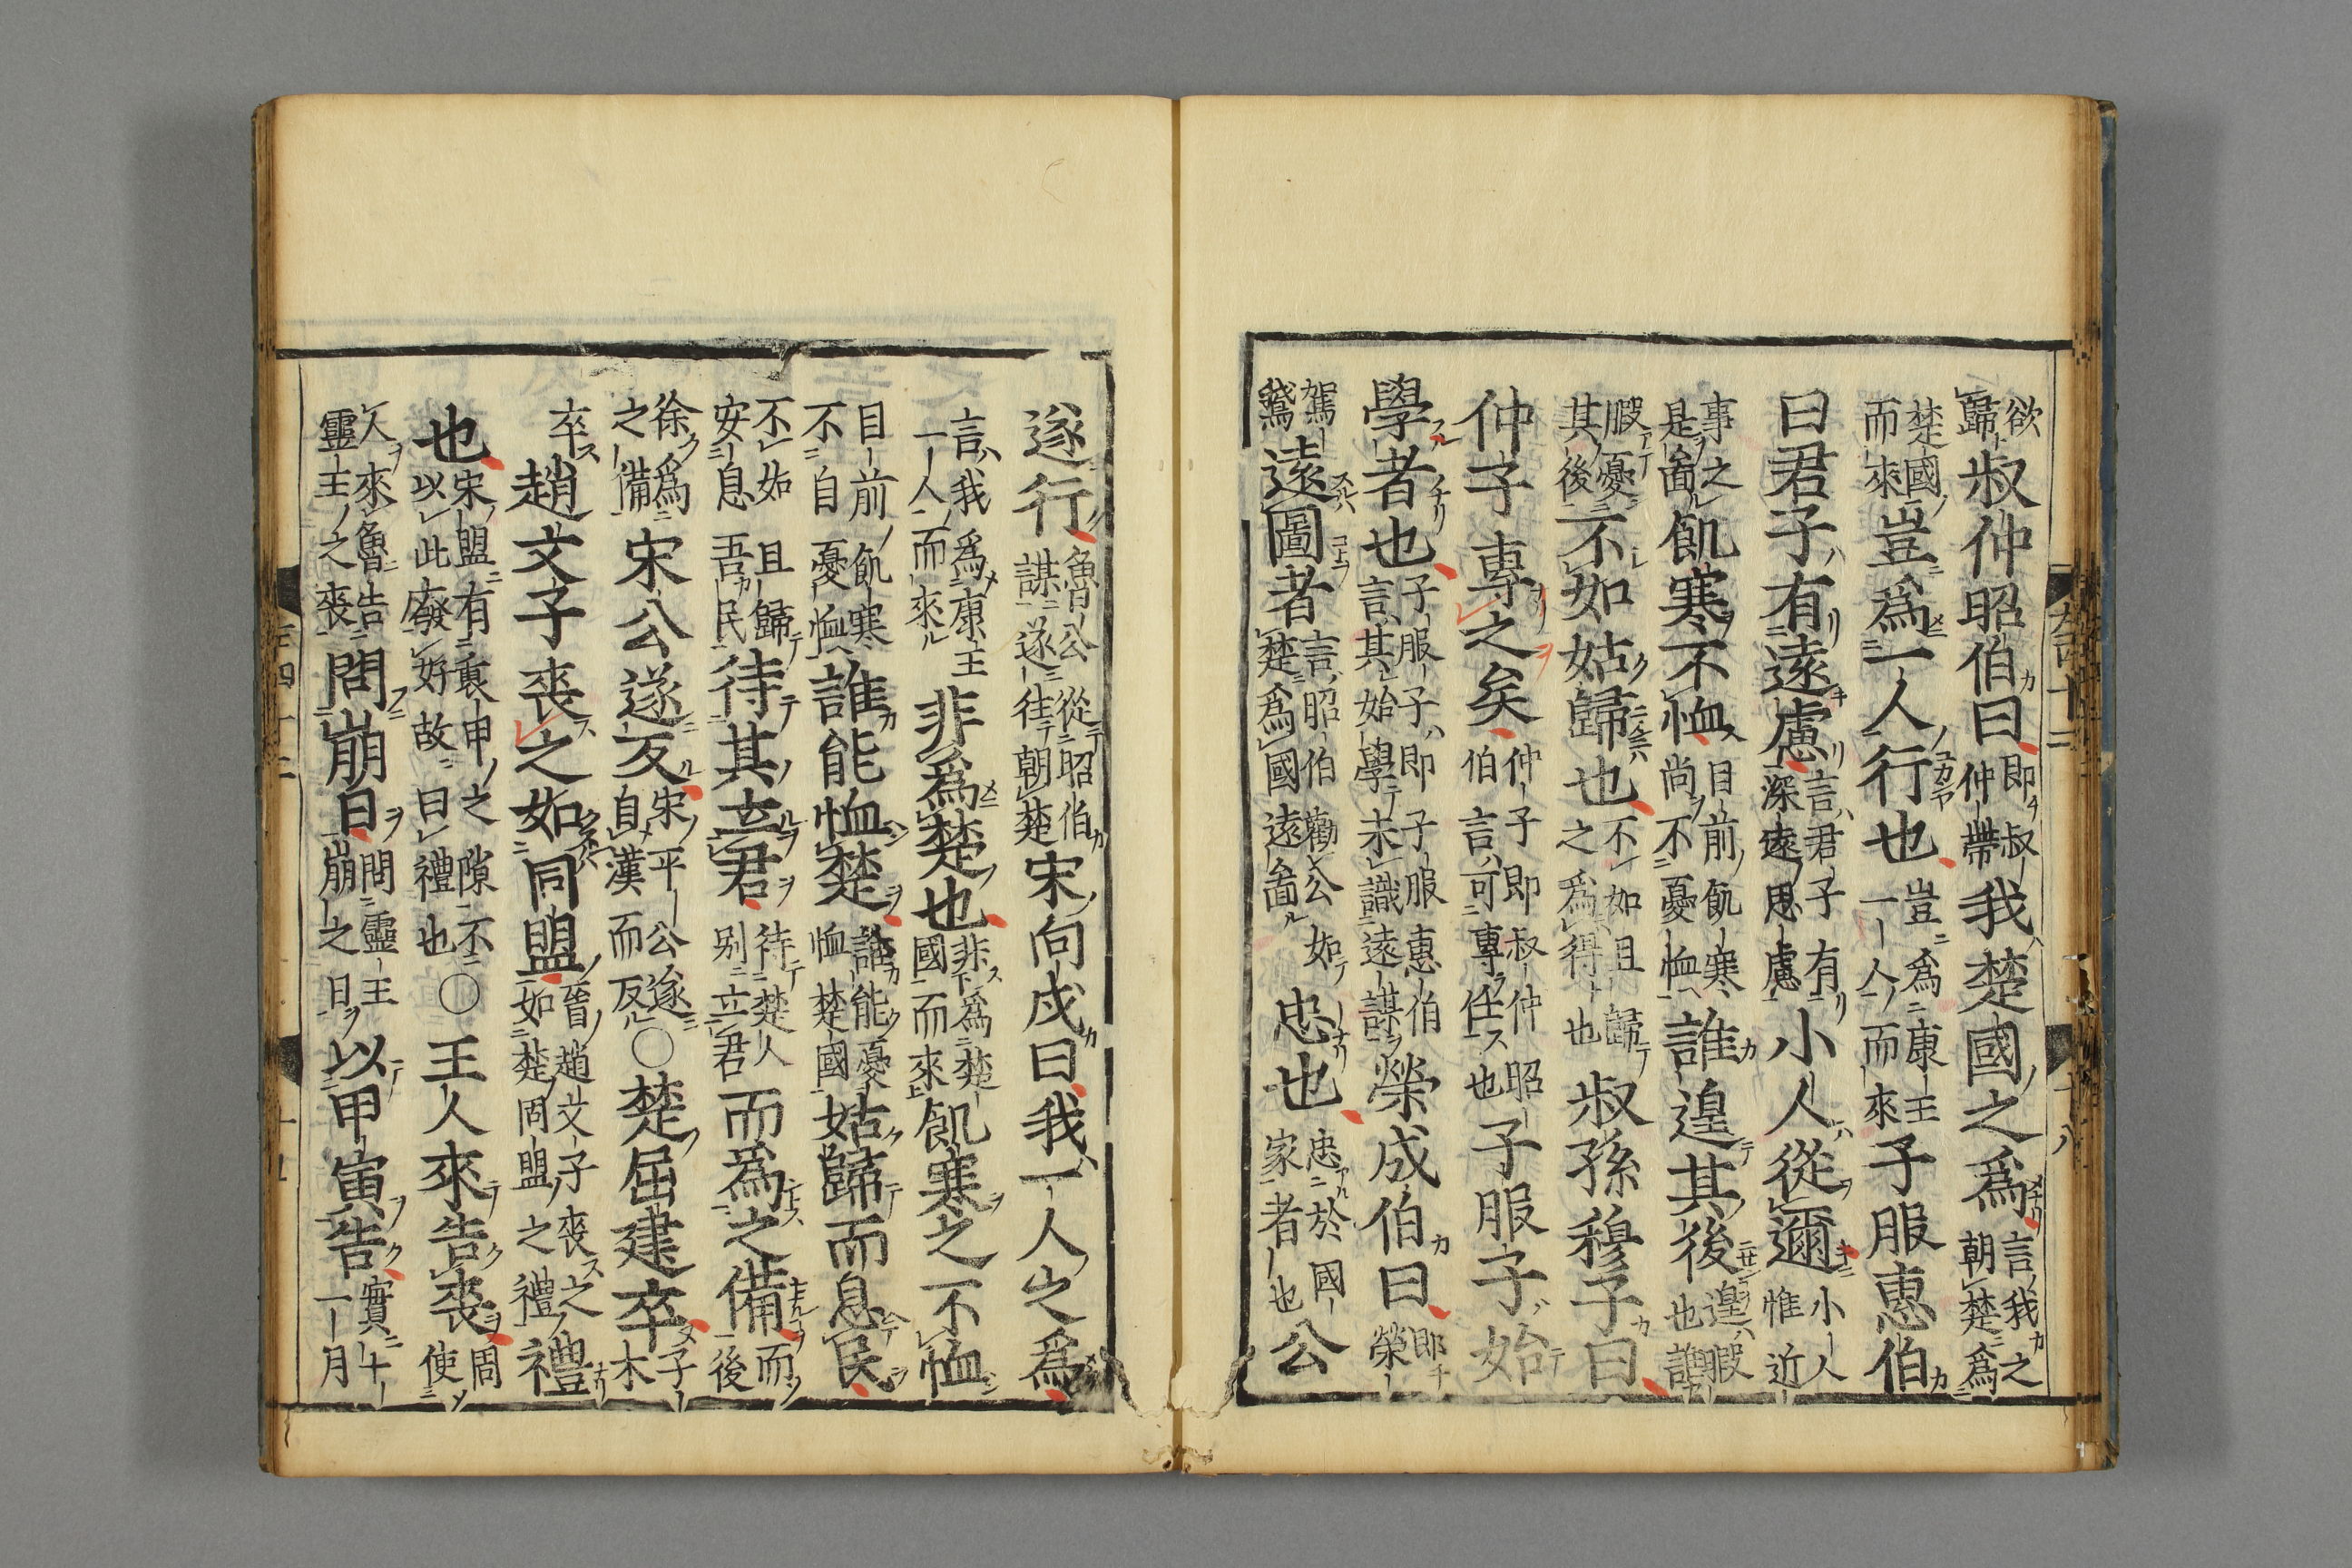 欲歸叔仲昭伯曰即叔仲帶我楚國之爲言我之朝楚爲
楚國而來豈爲一人行也豈爲康王一人而來子服惠伯
曰君子有遠慮言君子有深遠思慮小人從邇小人惟近
事之是圖飢寒不恤目前飢寒尚不憂恤誰遑其後遑暇也誰
暇憂其後不如姑歸也不如且歸之爲得也叔孫穆子曰
仲子專之矣仲子即叔仲昭伯言可專任也子服子始
學者也子服子即子服惠伯言其始學未識遠謀榮成伯曰即榮
駕鵞遠圖者言昭伯勸公如楚爲國遠圖忠也忠於國家者也公
遂行魯公從昭伯謀遂往朝楚宋向戌曰我一人之爲
言我爲康王一人而來非爲楚也非爲楚國而來飢寒之不恤
目前飢寒不自憂恤誰能恤楚誰能憂恤楚國姑歸而息民
不如且歸安息吾民待其立君待楚人別立君而爲之備而後
徐爲之備宋公遂反宋平公遂自漢而反〇楚屈建卒子木
卒趙文子喪之如同盟晉趙文子喪之如楚同盟之禮禮
也宋盟有衷甲之隙不以此廢好故曰禮也〇王人來告喪周使
人來魯告靈王之喪問崩日問靈王崩之日以甲寅告實十一月